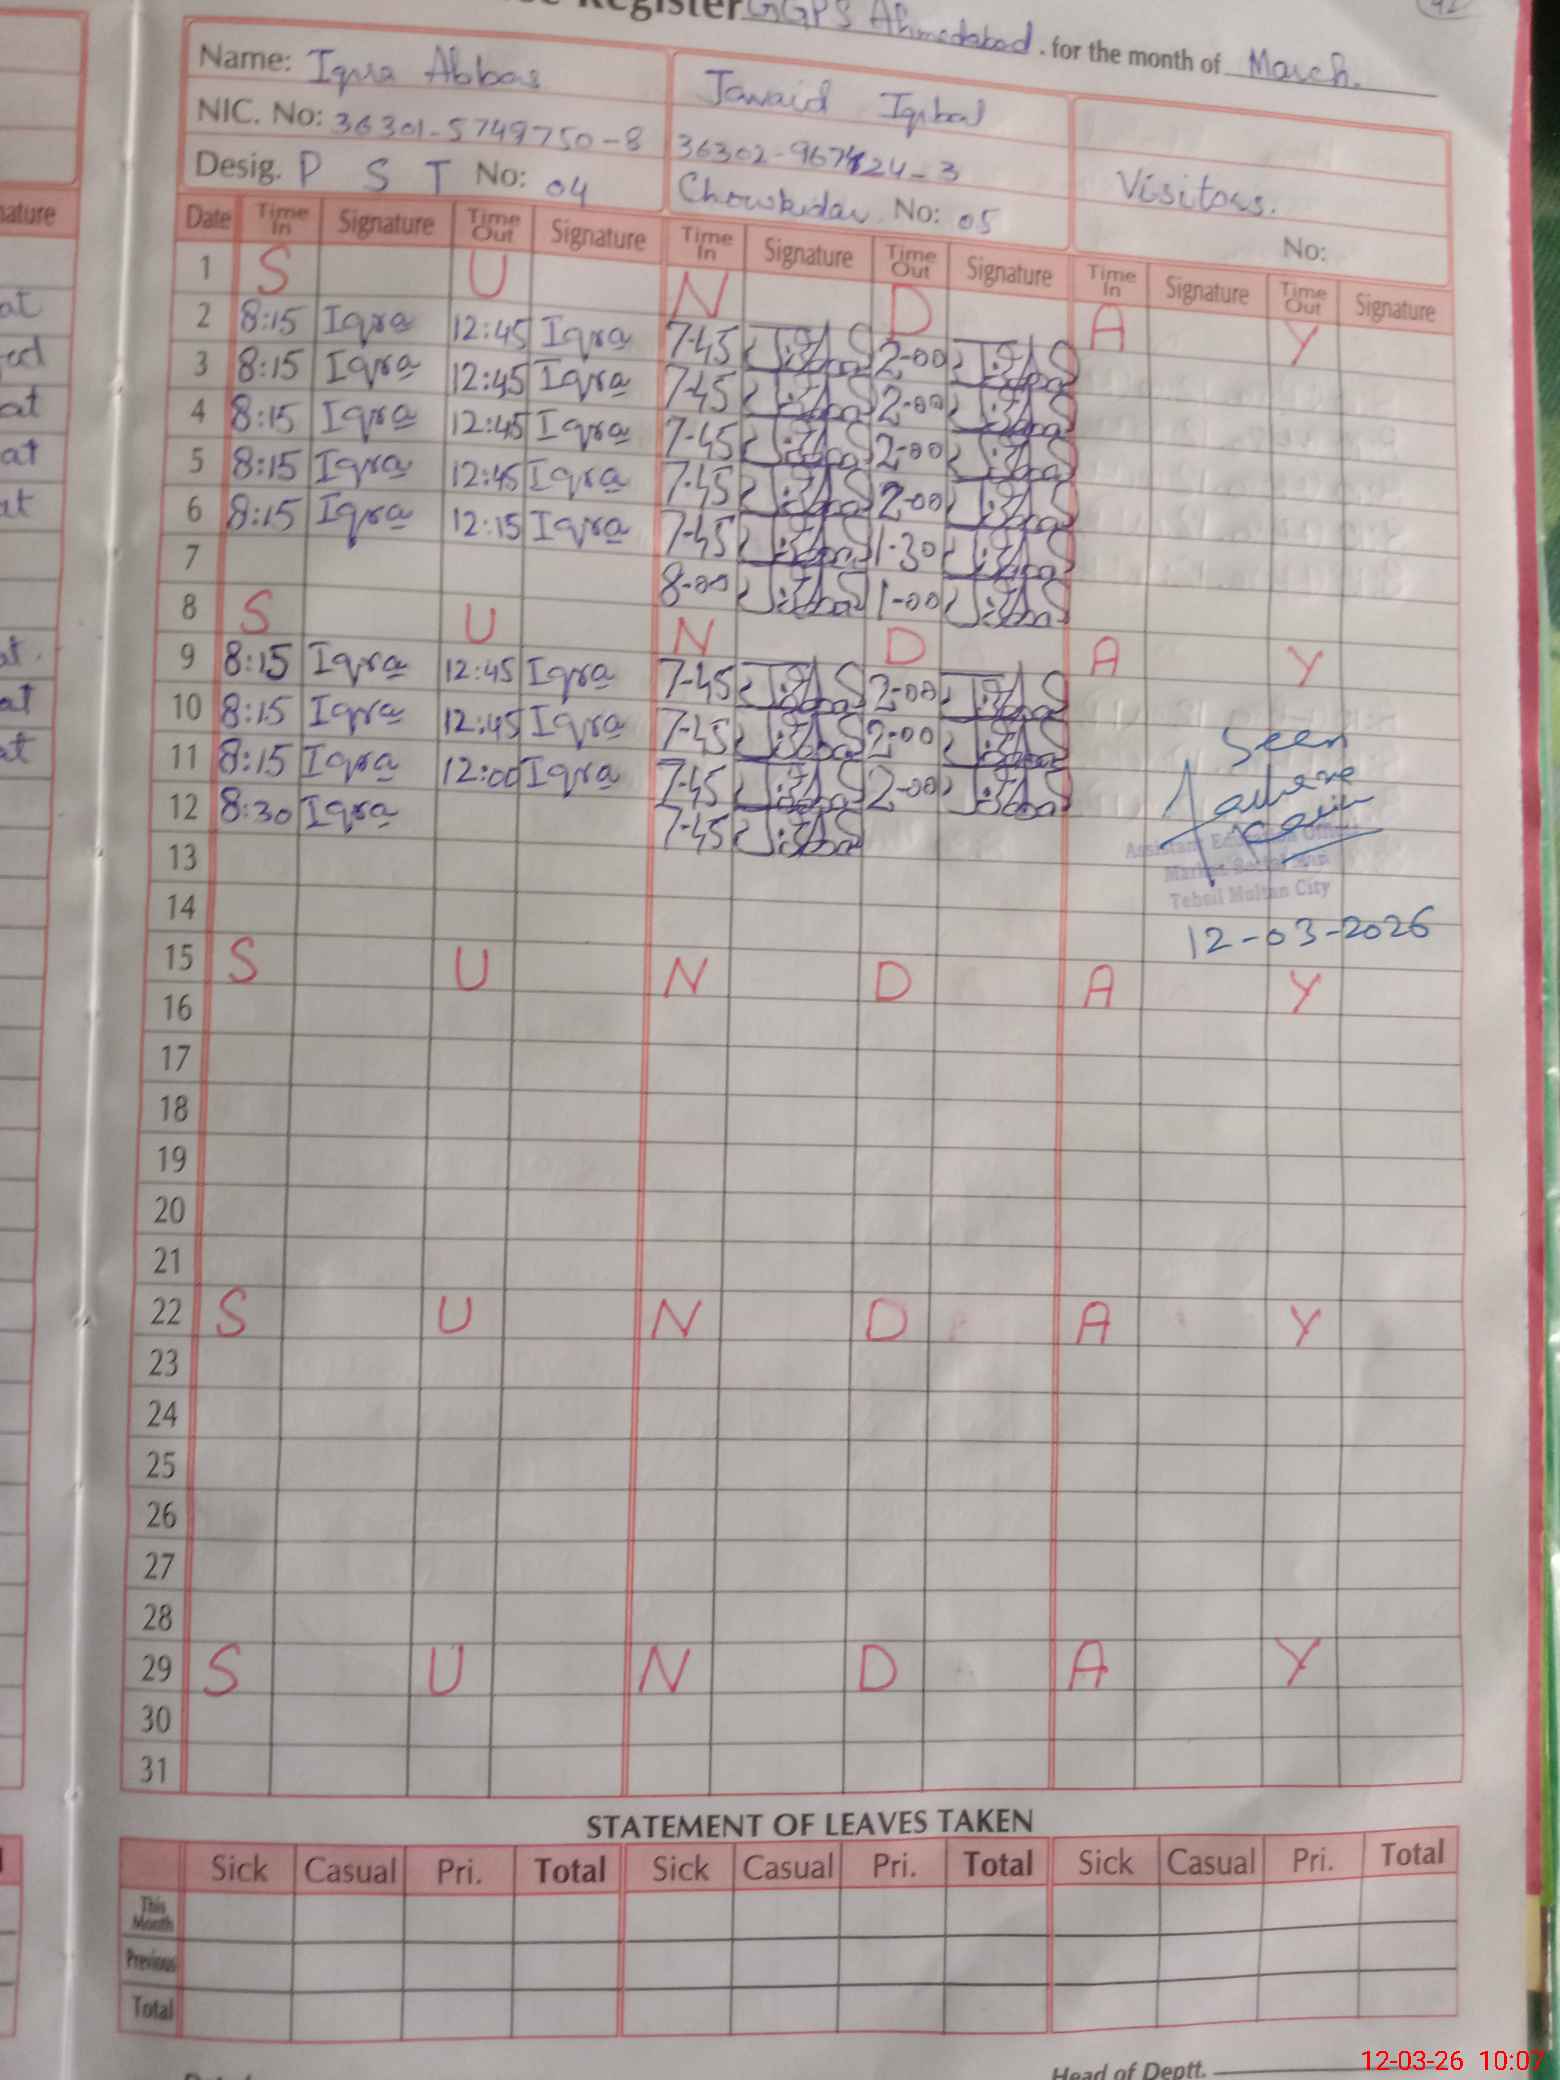 Register GGPS Ahmedabad. for the month of March.
Name: Iqra Abbas
NIC. No: 36301-5749750-8
Desig. P S T No: 04
Jawaid Iqbal
Chowkidar No: 05
Visitors.
No:
Date Time In Signature Time Out Signature Time In Signature Time Out Signature Time In Signature Time Out Signature
1 S U N D A Y
2 8:15 Iqra 12:45 Iqra 7-45 2-00
3 8:15 Iqra 12:45 Iqra 7-45 2-00
4 8:15 Iqra 12:45 Iqra 7-45 2-00
5 8:15 Iqra 12:45 Iqra 7-45 2-00
6 8:15 Iqra 12:15 Iqra 7-45 1-30
7 8-00 1-00
8 S U N D A Y
9 8:15 Iqra 12:45 Iqra 7-45 2-00
10 8:15 Iqra 12:45 Iqra 7-45 2-00
11 8:15 Iqra 12:00 Iqra 7-45 2-00
12 8:30 Iqra 7-45
Seen
Assistant Education
Tehsil Multan City
12-03-2026
13
14
15 S U N D A Y
16
17
18
19
20
21
22 S U N D A Y
23
24
25
26
27
28
29 S U N D A Y
30
31
STATEMENT OF LEAVES TAKEN
Sick Casual Pri. Total Sick Casual Pri. Total Sick Casual Pri. Total
This Month
Previous
Total
Head of Deptt.
12-03-26 10:07